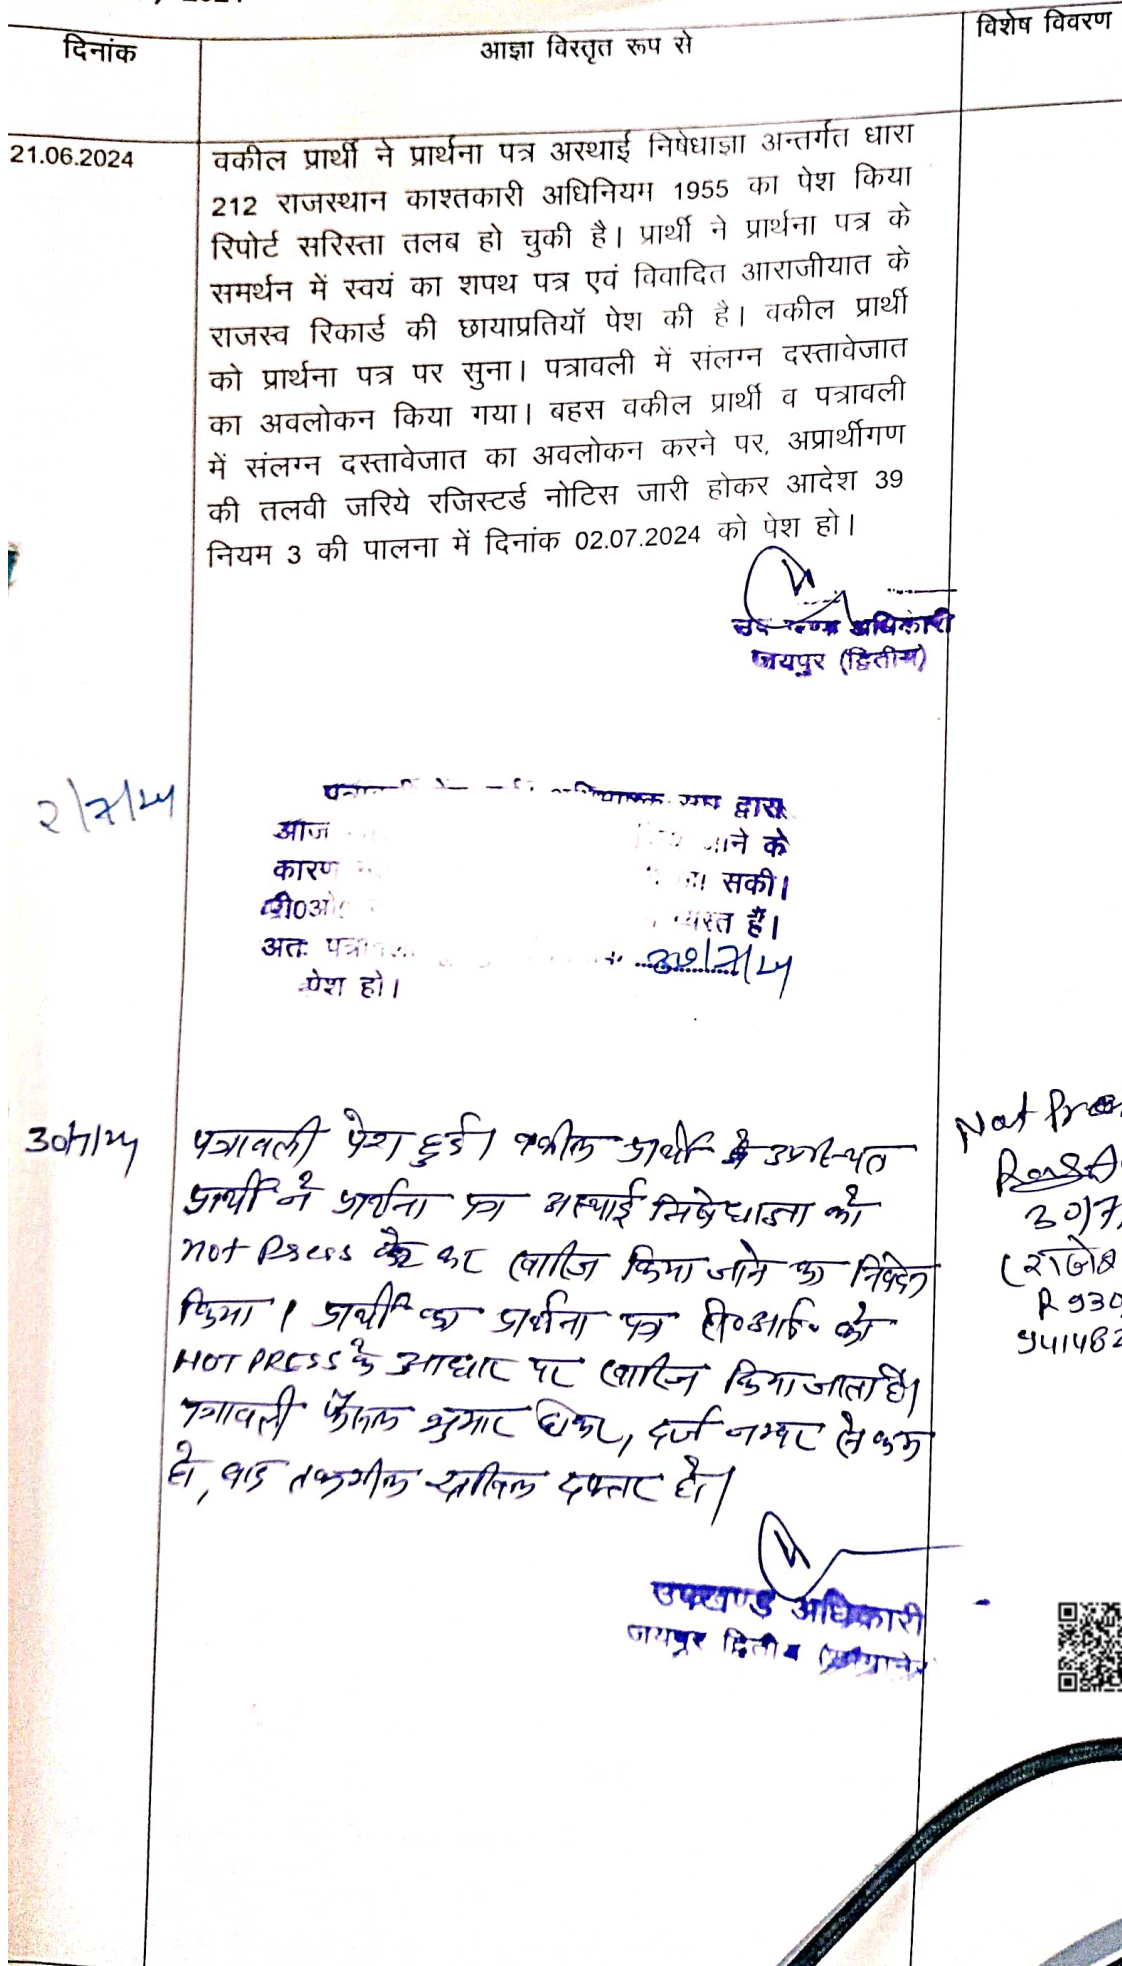 दिनांक
आज्ञा विस्तृत रूप से
विशेष विवरण
21.06.2024
वकील प्रार्थी ने प्रार्थना पत्र अस्थाई निषेधाज्ञा अन्तर्गत धारा
212 राजस्थान काश्तकारी अधिनियम 1955 का पेश किया
रिपोर्ट सरिस्ता तलब हो चुकी है। प्रार्थी ने प्रार्थना पत्र के
समर्थन में स्वयं का शपथ पत्र एवं विवादित आराजीयात के
राजस्व रिकार्ड की छायाप्रतियॉ पेश की है। वकील प्रार्थी
को प्रार्थना पत्र पर सुना। पत्रावली में संलग्न दस्तावेजात
का अवलोकन किया गया। बहस वकील प्रार्थी व पत्रावली
में संलग्न दस्तावेजात का अवलोकन करने पर, अप्रार्थीगण
की तलवी जरिये रजिस्टर्ड नोटिस जारी होकर आदेश 39
नियम 3 की पालना में दिनांक 02.07.2024 को पेश हो।
अधिकारी
जयपुर (द्वितीय)
2/7/24
द्वारा
आज के
कारण सकी।
है।
अतः 30/7/24
पेश हो।
30/7/24
पत्रावली पेश हुई। वकील प्रार्थी उपस्थित
प्रार्थी ने प्रार्थना पत्र अस्थाई निषेधाज्ञा को
not Press कर खारिज किया जाने का निवेदन
किया। प्रार्थी का प्रार्थना पत्र टी०आई० को
NOT PRESS के आधार पर खारिज किया जाता है।
पत्रावली फैसल शुमार होकर, दर्ज नम्बर से कम
हो, बाद तकमील दाखिल दफ्तर हो।
Not
30/7
R 930
941482
उपखण्ड अधिकारी
जयपुर द्वितीय